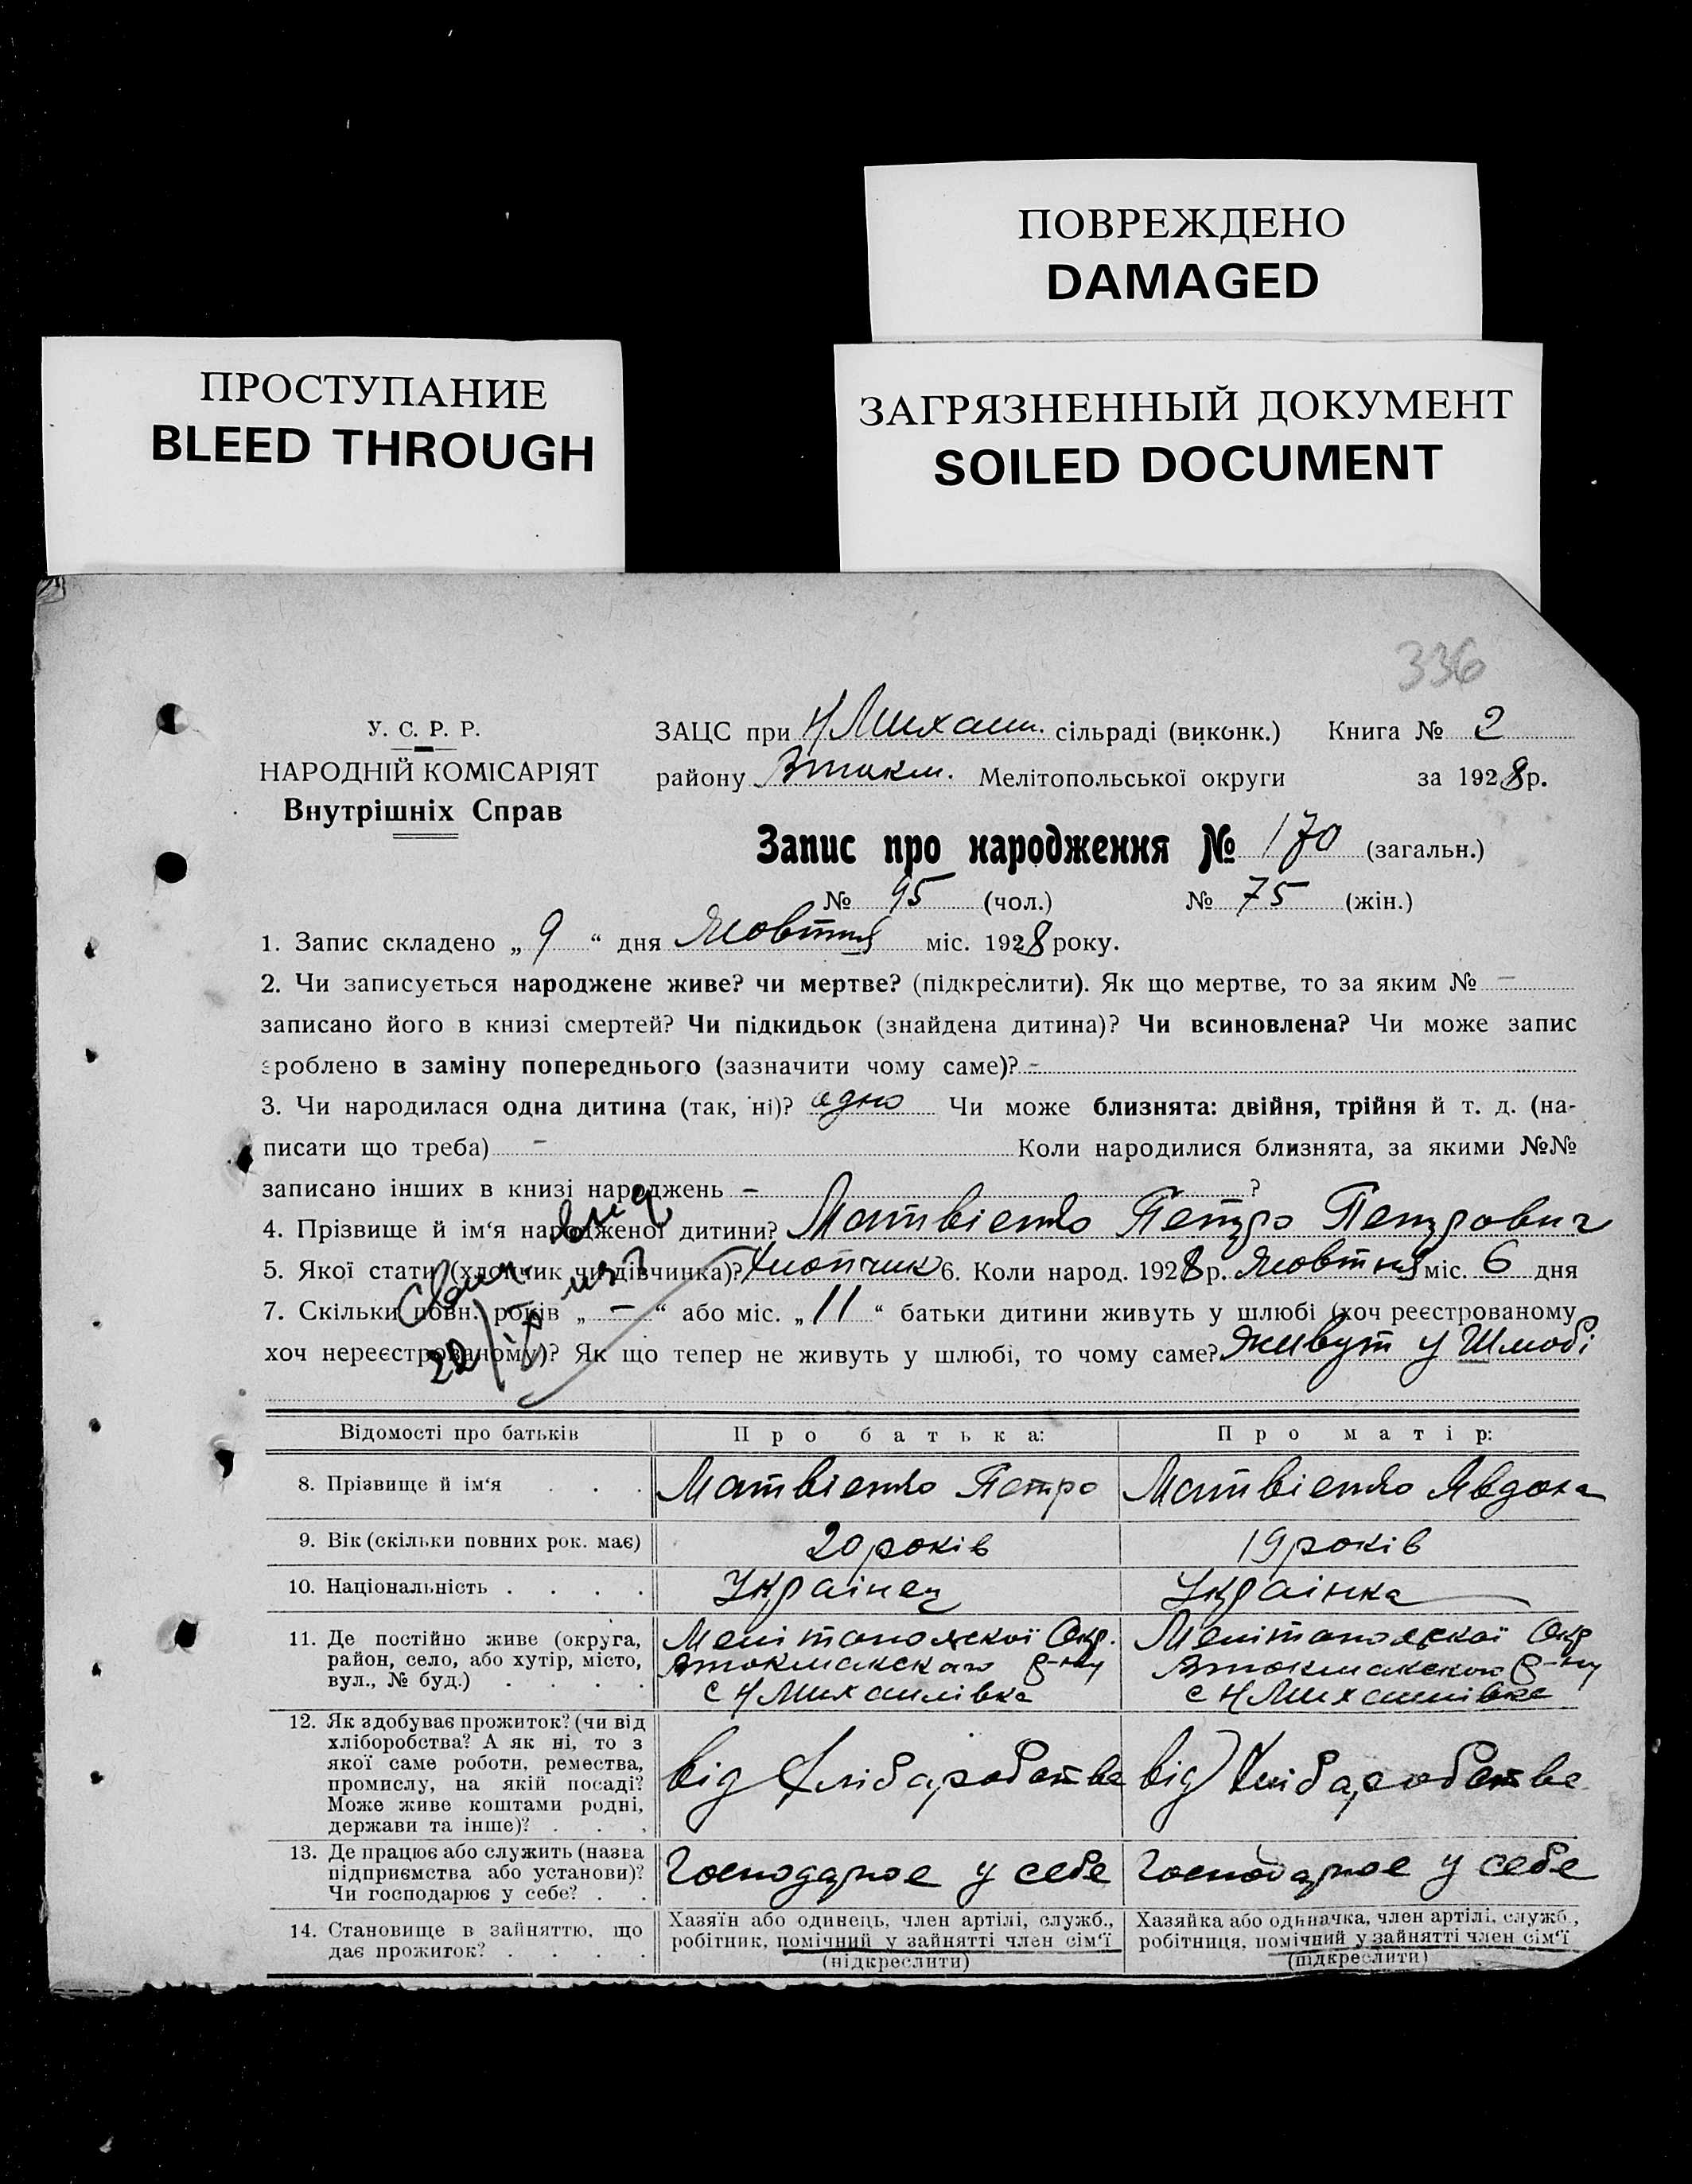 ПОВРЕЖДЕНО
DAMAGED
ПРОСТУПАНИЕ
BLEED THROUGH
ЗАГРЯЗНЕННЫЙ ДОКУМЕНТ
SOILED DOCUMENT
336
У. С. Р. Р.
НАРОДНІЙ КОМІСАРІЯТ
Внутрішніх Справ
ЗАЦС при Н Михаил. сільраді (виконк.) Книга № 2
району Втокм. Мелітопольської округи за 1928 р.
Запис про народження № 170 (загальн.)
№ 95 (чол.) № 75 (жін.)
1. Запис складено „ 9 “ дня Жовтня міс. 1928 року.
2. Чи записується народжене живе? чи мертве? (підкреслити). Як що мертве, то за яким № –
записано його в книзі смертей? Чи підкидьок (знайдена дитина)? Чи всиновлена? Чи може запис
зроблено в заміну попереднього (зазначити чому саме)? -
3. Чи народилася одна дитина (так, ні)? одно Чи може близнята: двійня, трійня й т. д. (на-
писати що треба) – Коли народилися близнята, за якими №№
записано інших в книзі народжень – ?
4. Прізвище й ім‘я народженої дитини? Матвіенко Петро Петрович
5. Якої стати (хлопчик чи дівчинка)? Хлопчик 6. Коли народ. 1928 р. Жовтня міс. 6 дня
7. Скільки повн. років „ – “ або міс. „ 11 “ батьки дитини живуть у шлюбі (хоч реєстрованому
хоч нереєстрованому)? Як що тепер не живуть у шлюбі, то чому саме? Живут у Шлюбі
Відомості про батьків Про батька: Про матір:
8. Прізвище й ім‘я . . . Матвіенко Петро Матвіенко Явдоха
9. Вік (скільки повних рок. має) 20 років 19 років
10. Національність . . . . Украінец Украінка
11. Де постійно живе (округа,
район, село, або хутір, місто,
вул., № буд.) . . . .
Мелітопольскої Окр.
Втокмакского р-ну
с Н Михаилівка
Мелітопольскої Окр
Втокмакского р-ну
с Н Михаилівка
12. Як здобуває прожиток? (чи від
хліборобства? А як ні, то з
якої саме роботи, ремества,
промислу, на якій посаді?
Може живе коштами родні,
держави та інше)? . . .
від Хлібаробства
від Хлібаробства
13. Де працює або служить (назва
підприємства або установи)?
Чи господарює у себе? . .
Господарює у себе
Господарює у себе
14. Становище в зайняттю, що
дає прожиток? . . . .
Хазяїн або одинець, член артілі, служб.,
робітник, помічний у зайнятті член сім‘ї
(підкреслити)
Хазяйка або одиначка, член артілі, служб.,
робітниця, помічний у зайнятті член сім‘ї
(підкреслити)